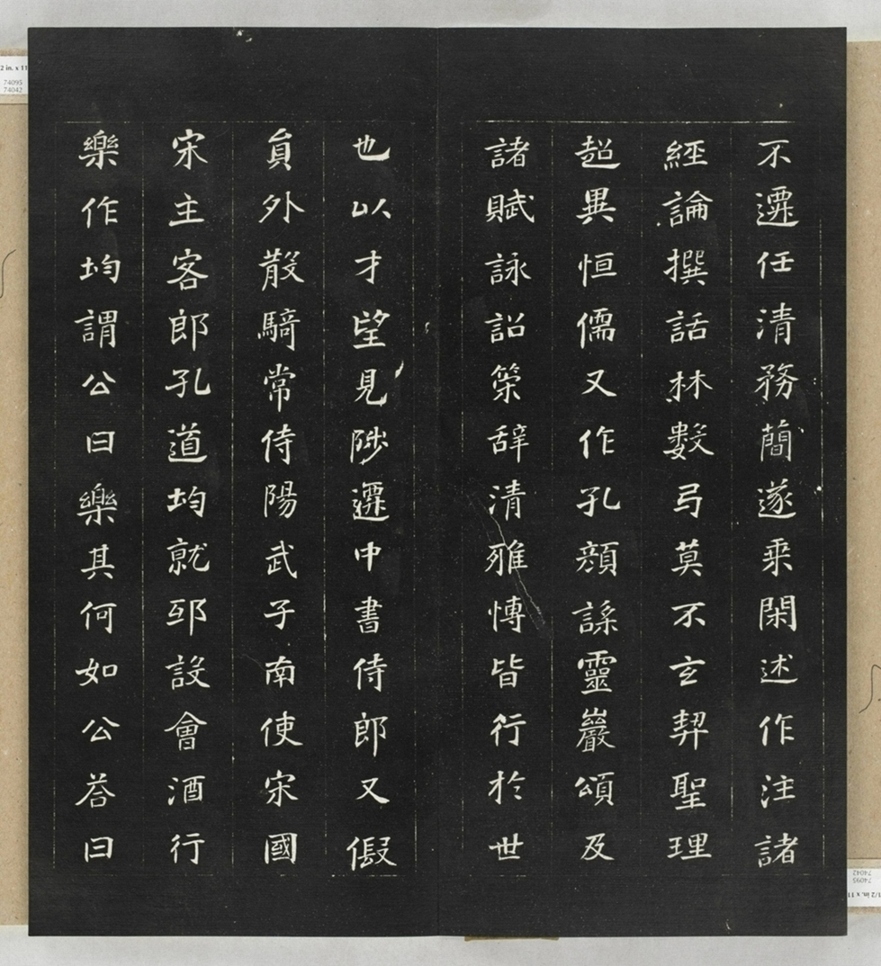 不遷任清務簡遂乘閑述作注諸
經論撰話林數弓莫不玄契聖理
超異恒儒又作孔顔謡靈巖頌及
諸賦詠詔策辞清雅愽皆行於世
也以才望見陟遷中書侍郎又假
貟外散騎常侍陽武子南使宋國
宋主客郎孔道均就邸設會酒行
樂作均謂公曰樂其何如公荅曰
2 in. x 11
74095
74042
1/2 in. x 11
74095
74042